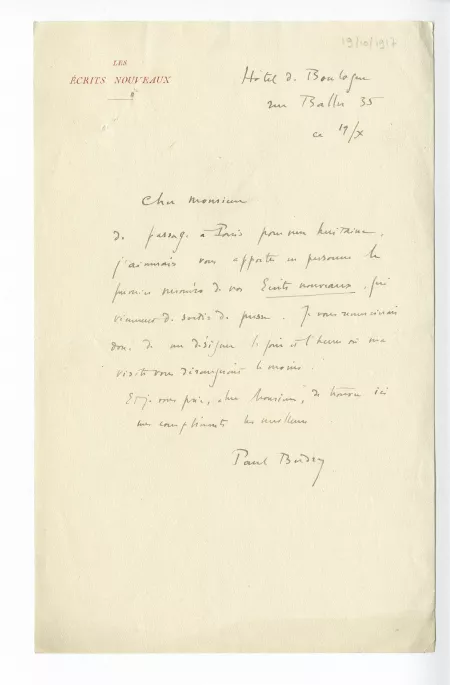 19/10/1917
LES
ÉCRITS NOUVEAUX
Hôtel de Boulogne
rue Ballu 35
ce 19/X
Cher monsieur
de passage à Paris pour une huitaine,
j'aimerais vous apporter en personne le
premier numéro de nos Ecrits nouveaux, qui
viennent de sortir de presse. Je vous remercierais
donc de me désigner le jour et l'heure où ma
visite vous dérangerait le moins.
Et je vous prie, cher Monsieur, de trouver ici
mes compliments les meilleurs
Paul Budry